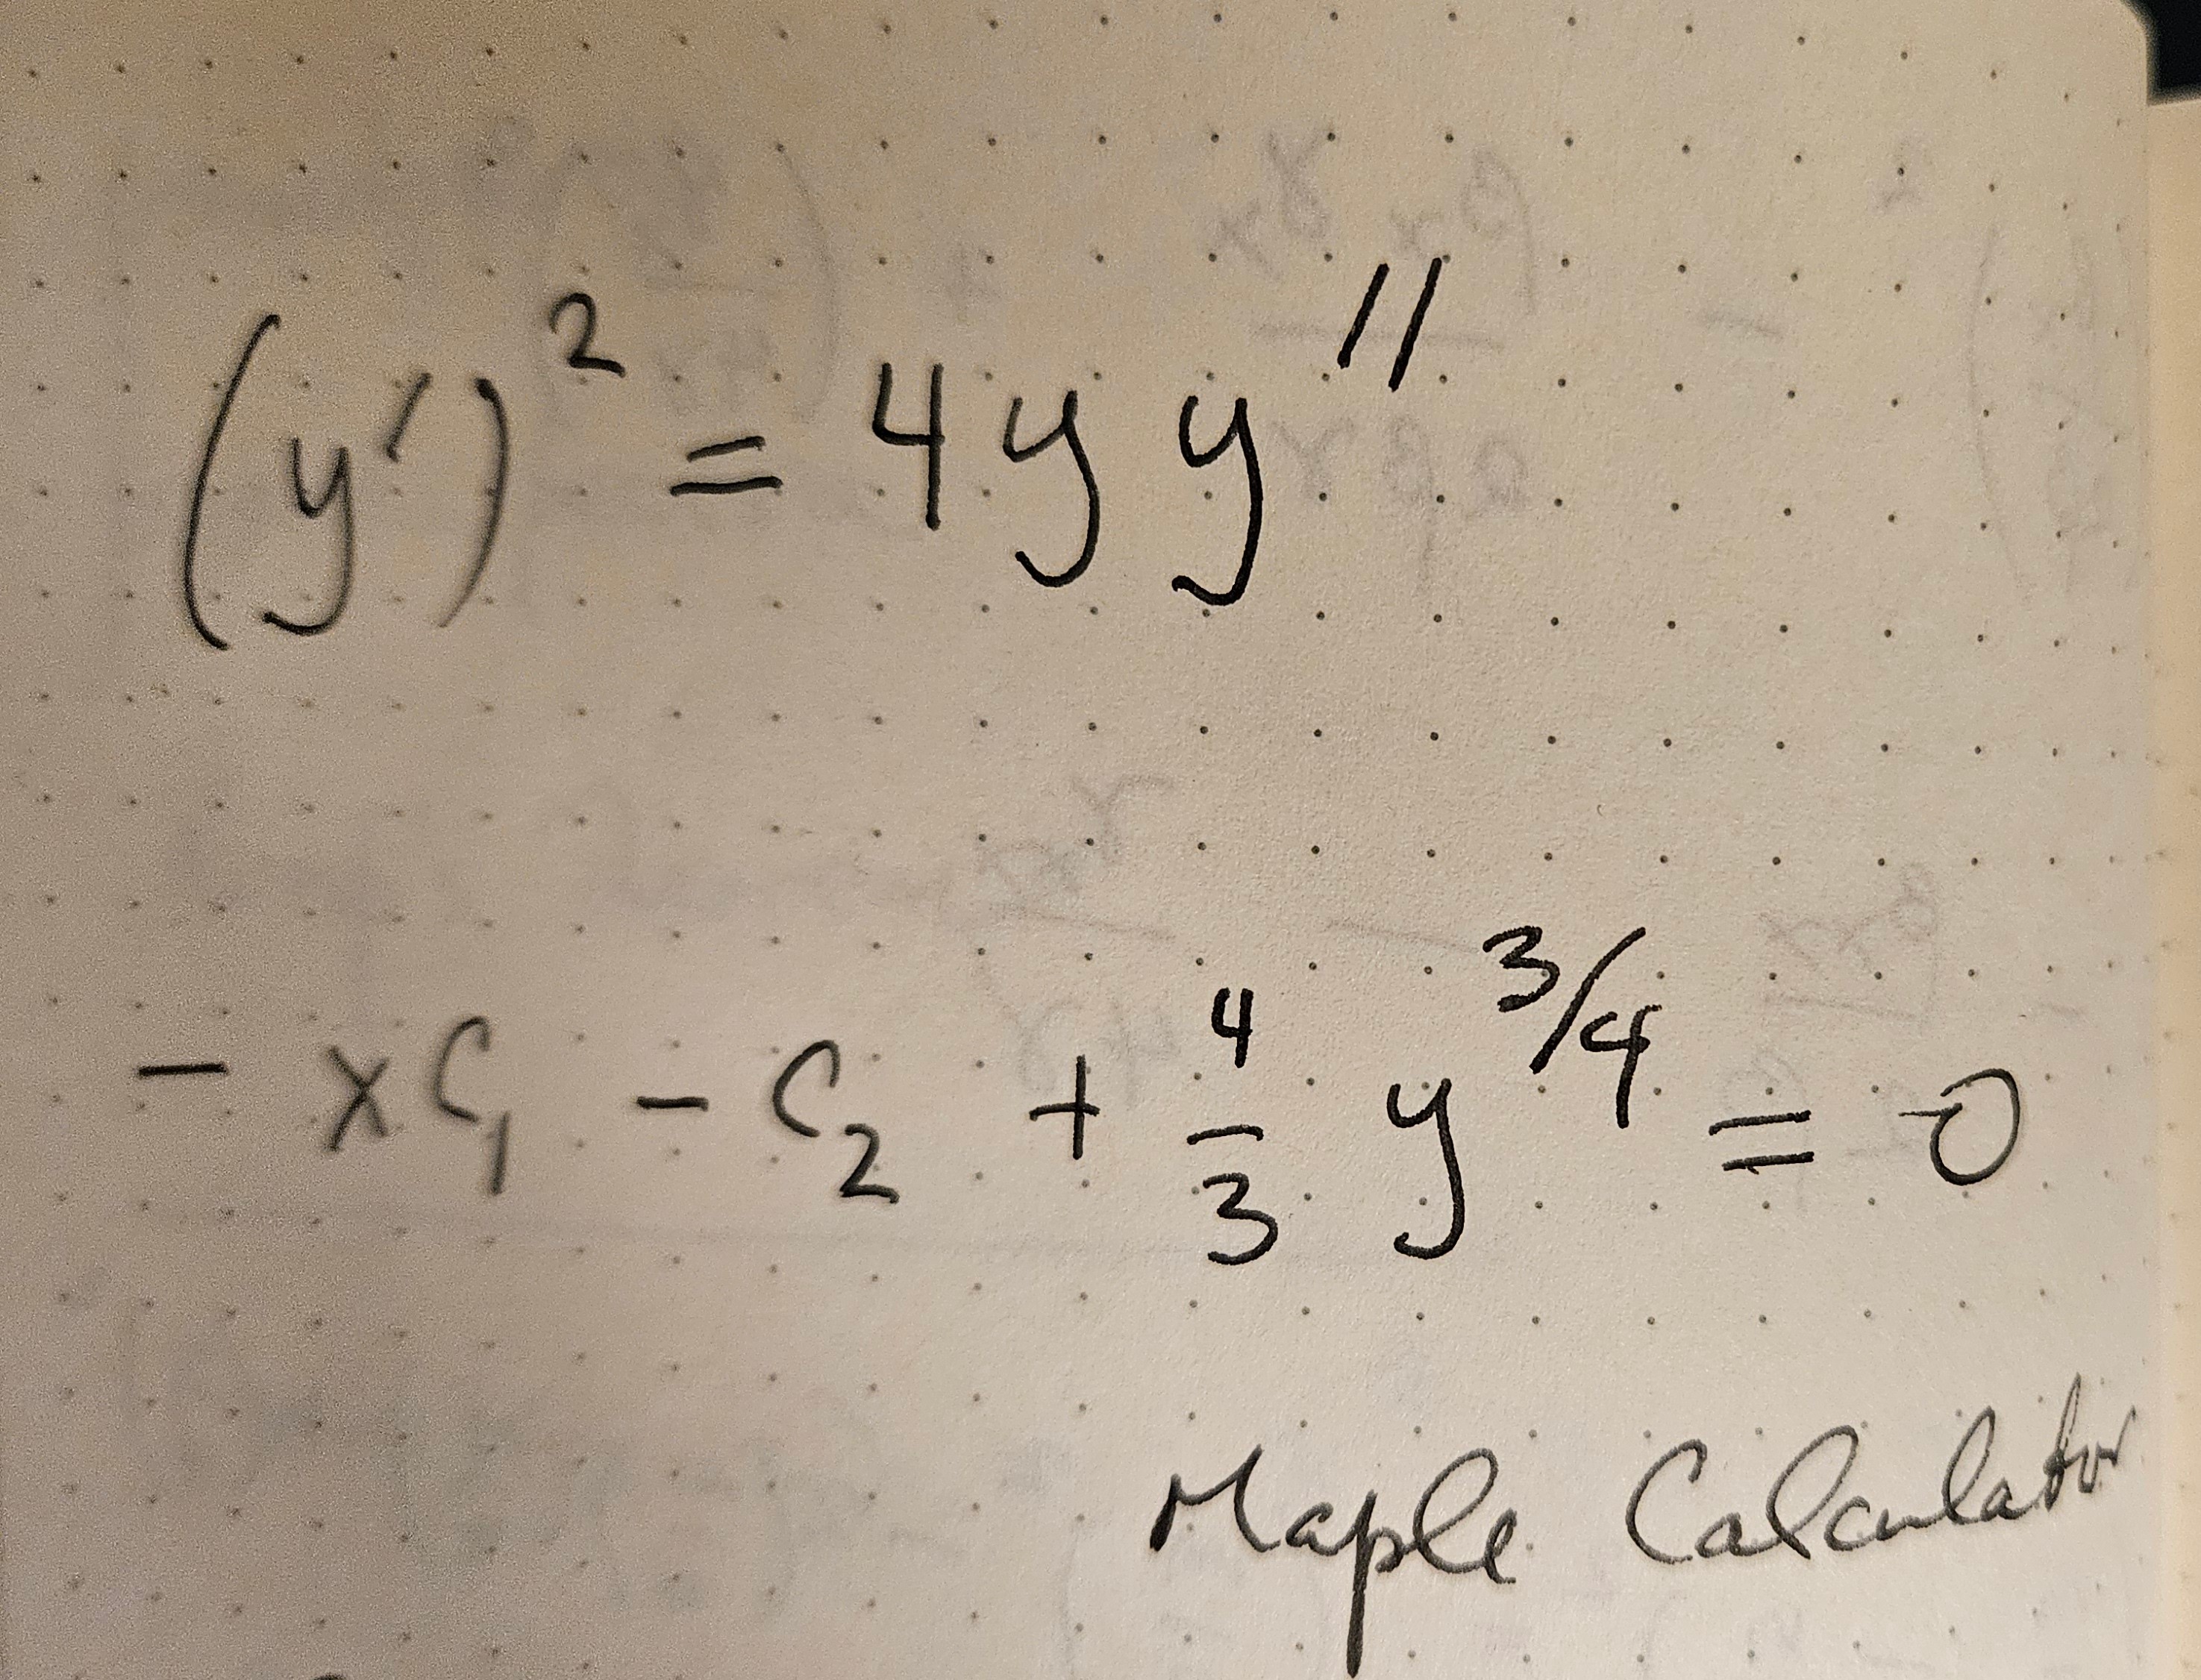 (y')² = 4 y y''
- x C₁ - C₂ + 4/3 y^3/4 = 0
Maple Calculator